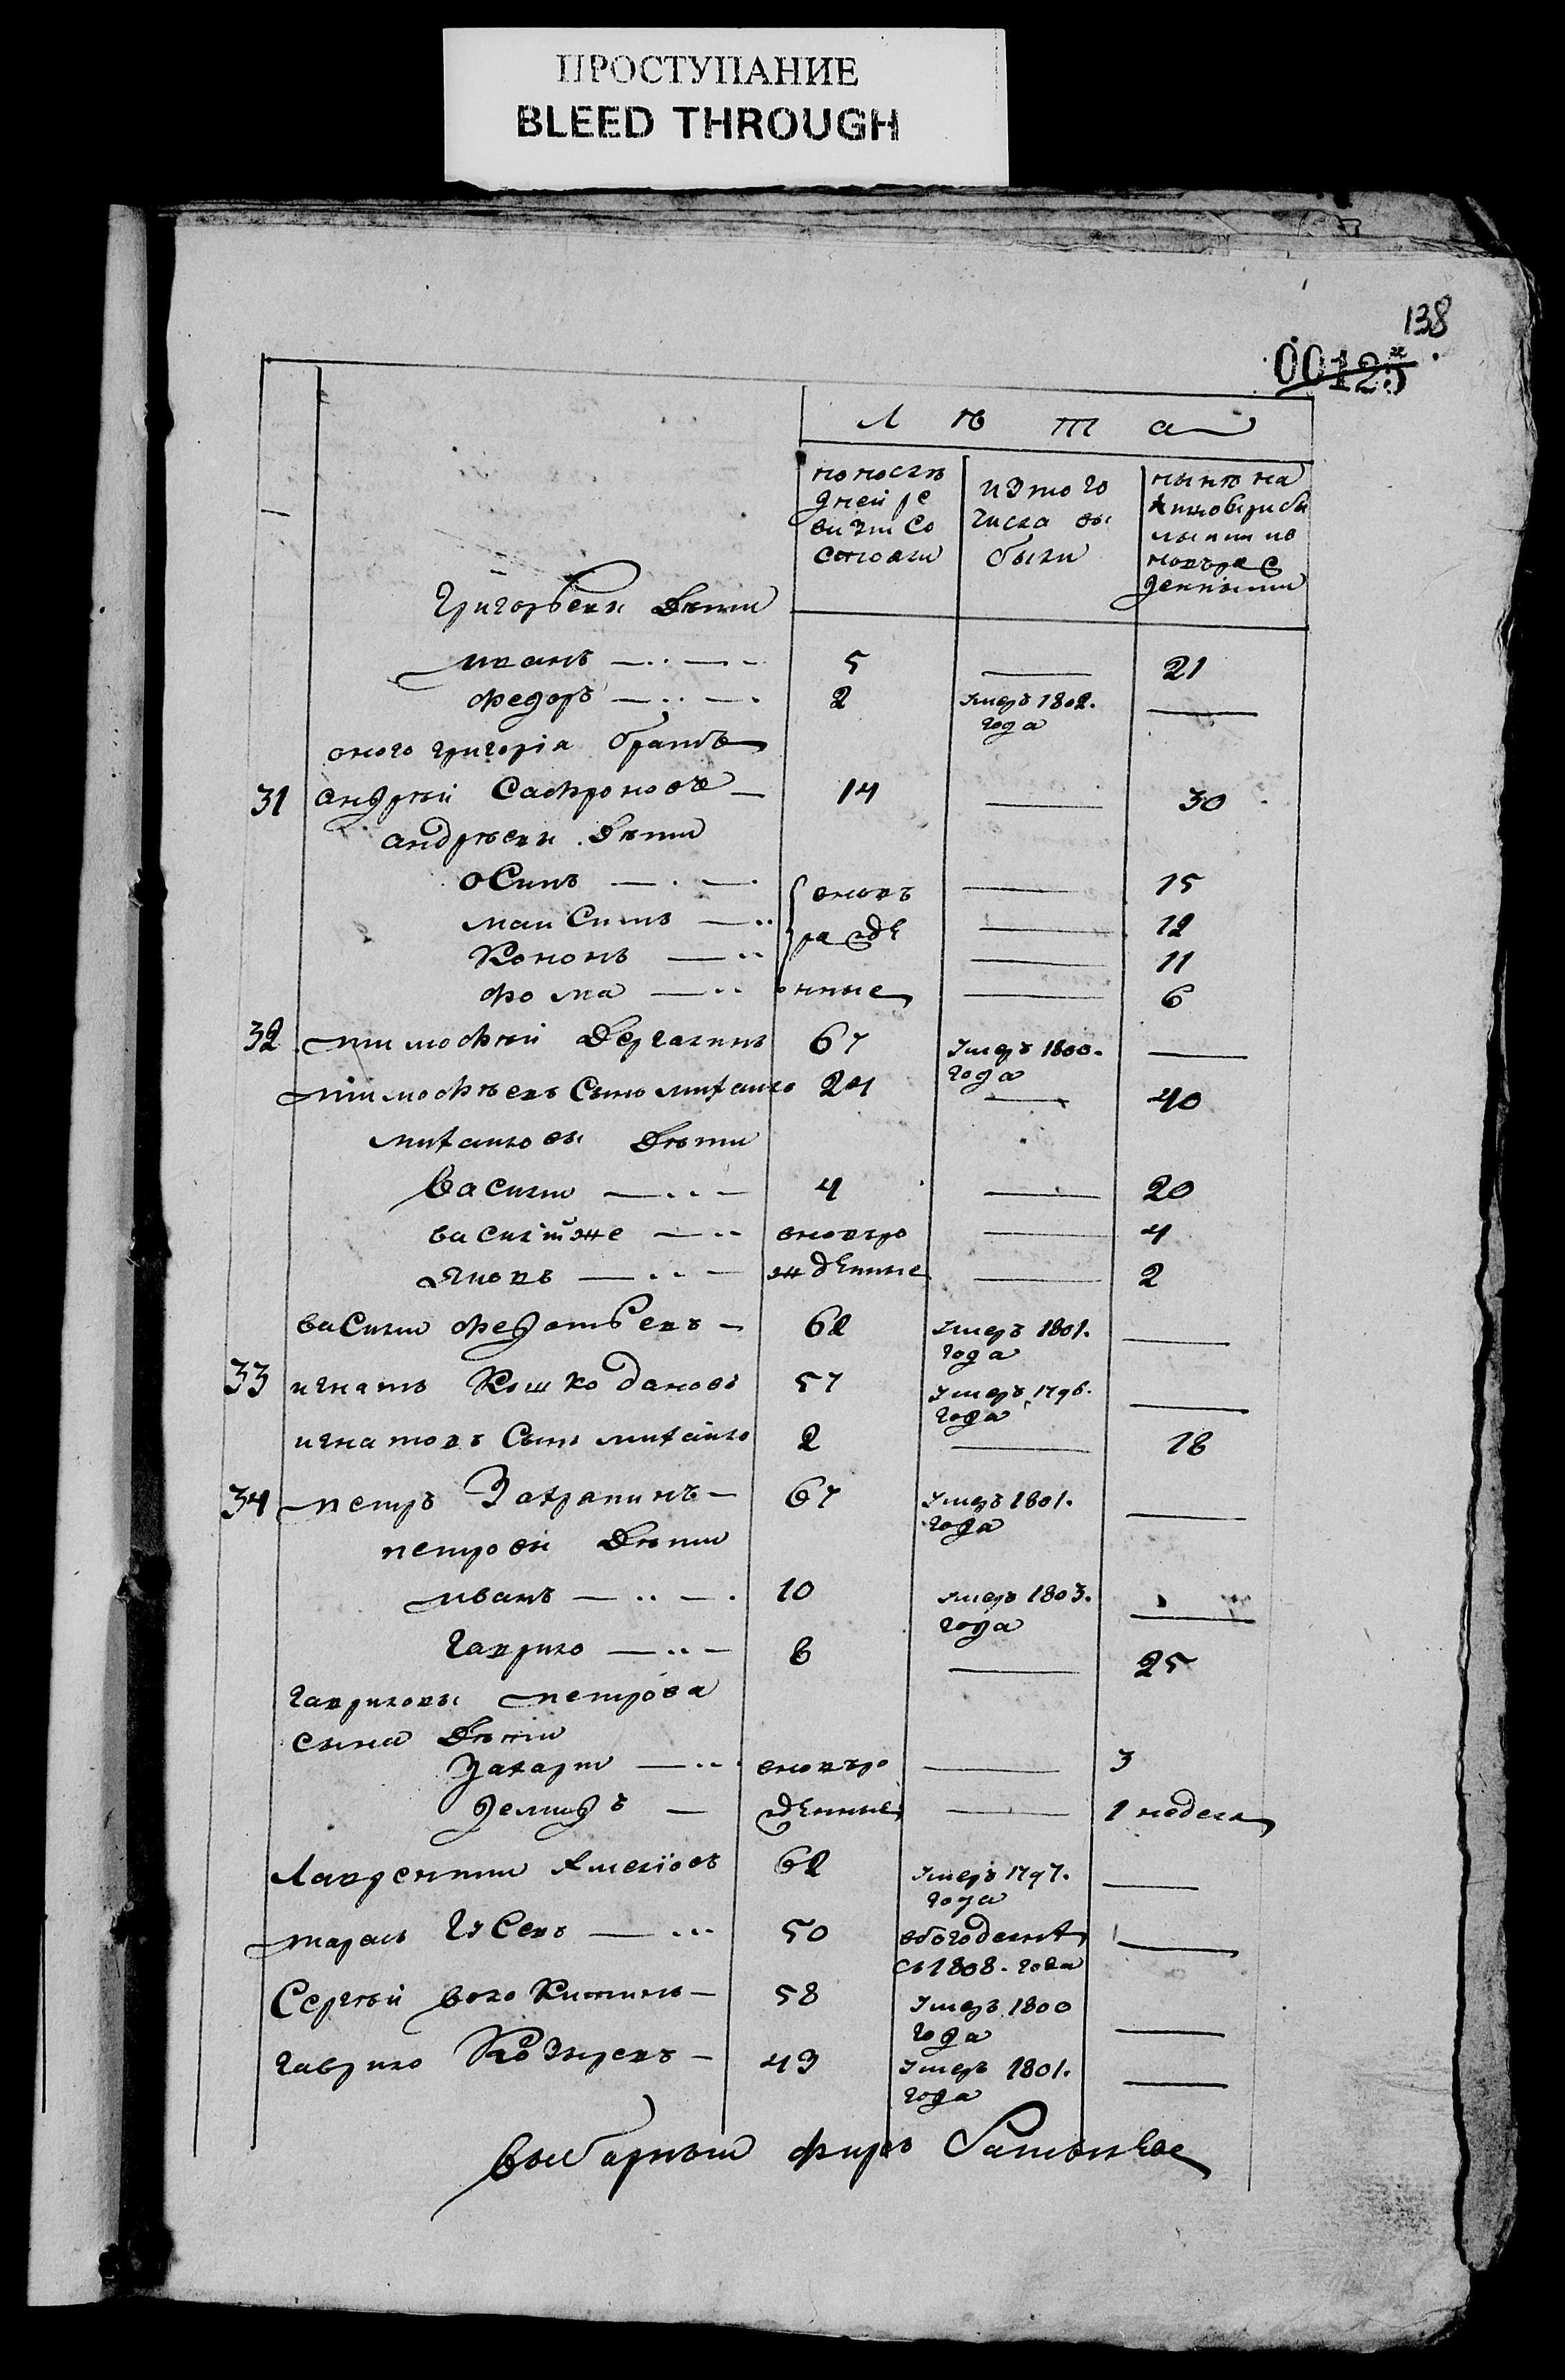 ПРОСТУПАНИЕ
BLEED THROUGH
138
00125
лѣта
попослѣ дней ре визи со стояли
изтого числа вы были
нынѣ на лицо
Григорьевы дѣти
иванъ 5 — 21
федоръ 2 умеръ 1802. года —
оного григорія братъ
31 андрѣй Сафроновъ 14 — 30
андрѣевы дѣти
осипъ вновь — 15
максимъ рожде — 12
Кононъ — 11
фома нные — 6
32 тимофѣй Дергачинъ 67 умеръ 1800. года —
тимофѣевъ сынъ михаило 24 — 40
михаиловы дѣти
василий 4 — 20
василийже вновьро — 4
яковъ жденные — 2
василий федотьевъ 62 умеръ 1801. года —
33 игнатъ Кошкодановъ 57 умеръ 1796. года —
игнатовъ сынъ михайло 2 — 18
34 петръ Захрапинъ 67 умеръ 1801. года —
петровы дѣти
иванъ 10 умеръ 1803. года —
гаврило 8 — 25
гавриловы петрова
сына дѣти
Захаръи вновьро — 3
демидъ жденные — 1 неделя
Лаврентии Амелiовъ 62 умеръ 1797. года —
тарасъ Гусевъ 50 вбогоделнѣ съ 1808. года —
Сергѣй волокитинъ 58 умеръ 1800 года —
гаврило Козыревъ 43 умеръ 1801. года —
выборный фирсъ